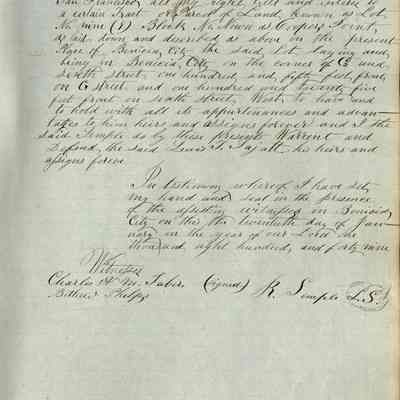 San Francisco, all my right, title and interest to
a certain Tract or Parcel of Land known as Lot
No nine (9) Block No. down as Coopers Point,
as laid down and described as above on the present
Place of Benicia City the said Lot laying and
being in Benicia City on the corner of G and
seventh street, one hundred, and fifty feet front
on G street and one hundred and twenty five
feet front on seventh street, West, to have and
to hold with all its appurtenances and advan-
tages to him heirs and assigns forever and I the
said Semple do by these Presents Warrent and
Defend, the said Lewis T. his heirs and
assigns forever
In testimony whereof I have set
my hand and seal in the presence
of the attesting witnesses in Benicia
City on this the twentieth day of Jan-
uary in the year of our Lord one
thousand, eight hundred, and forty nine
Witnesses
Charles H. M. Tabir (signed) R. Semple L.S.
Phelps